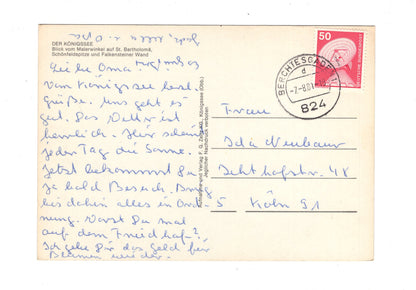 DER KÖNIGSSEE
Blick vom Malerwinkel auf St. Bartholomä,
Schönfeldspitze und Falkensteiner Wand
Liebe Oma.
Vom Königssee herzl.
Grüße. Uns geht es
gut. Das Wetter ist
herrlich. Hier scheint
jeder Tag die Sonne.
Jetzt bekommst Du
ja bald Besuch. Bring
bis dahin alles in Ord-
nung. Warst Du mal
auf dem Friedhof?
Ich gebe Dir das Geld für
Blumen wieder.
Königssee (Obb.)
Jeglicher Nachdruck verboten
50
DEUTSCHE BUNDESPOST
BERCHTESGADEN
d
824
Frau
Ida Neubaur
5 Köln 91